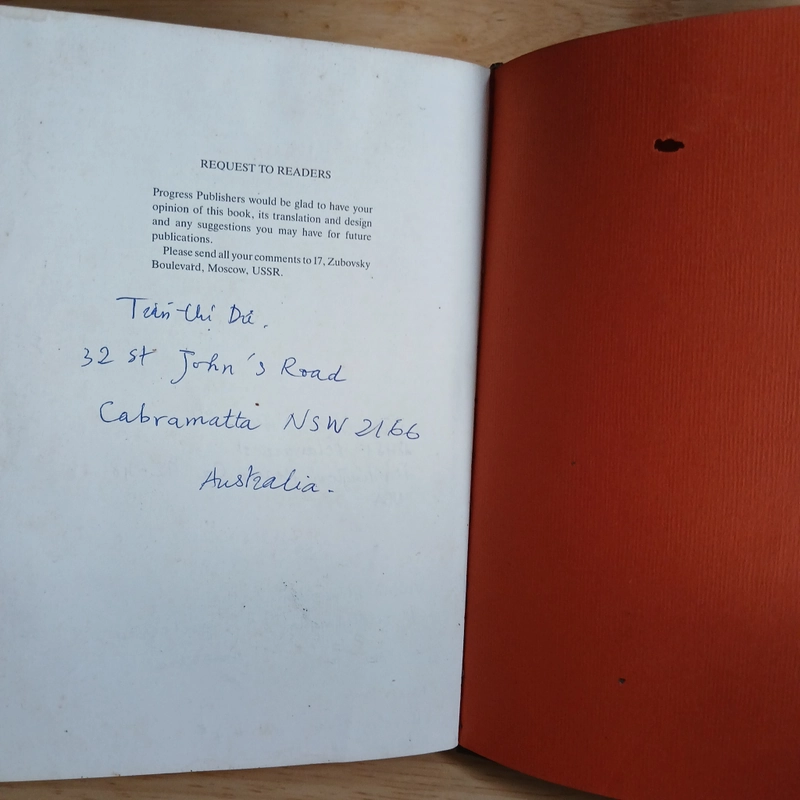 REQUEST TO READERS
Progress Publishers would be glad to have your
opinion of this book, its translation and design
and any suggestions you may have for future
publications.
Please send all your comments to 17, Zubovsky
Boulevard, Moscow, USSR.
Thị
32 St John's Road
Cabramatta NSW 2166
Australia.